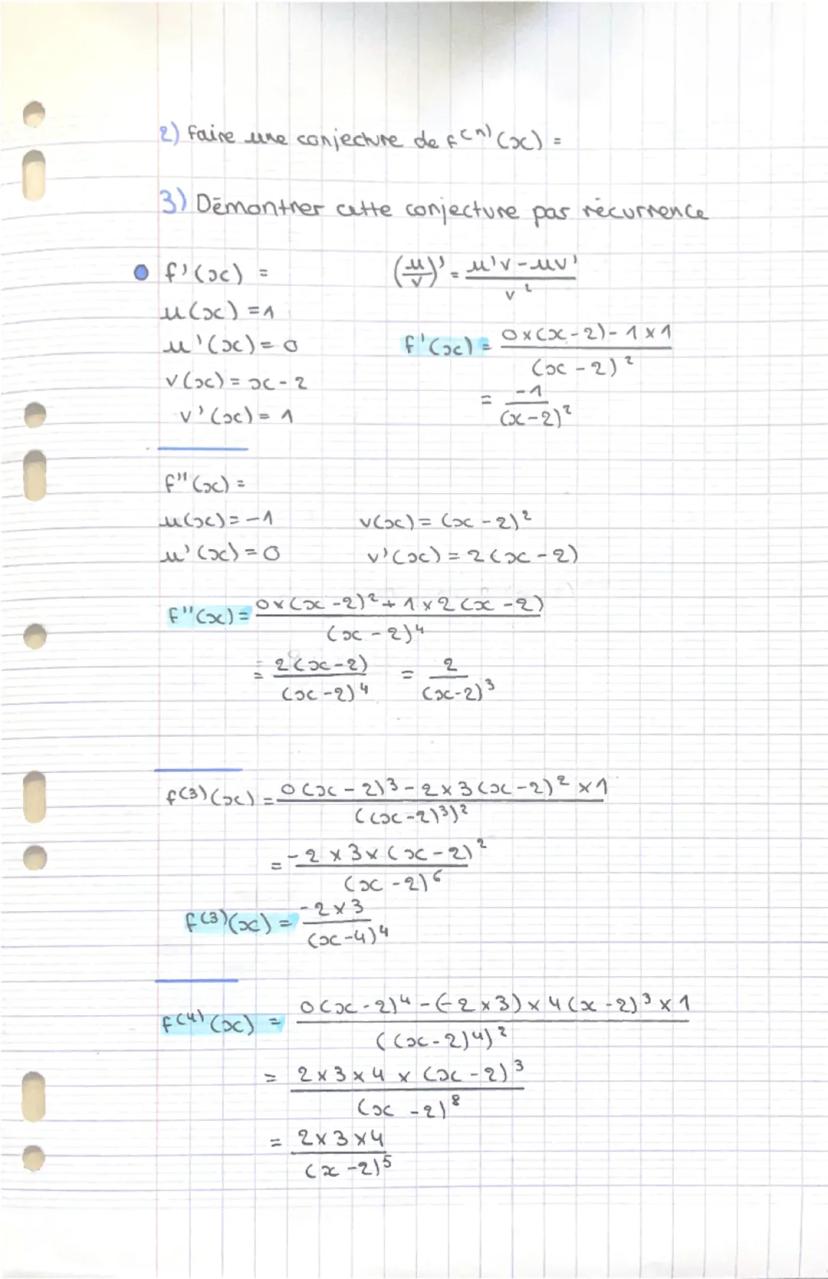 2) Faire une conjecture de f⁽ⁿ⁾(x) =
3) Démontrer cette conjecture par récurrence
f'(x) =
(u/v)' = (u'v - uv')/v²
u(x) = 1
u'(x) = 0
f'(x) = (0×(x-2) - 1×1)/(x-2)²
v(x) = x - 2
= -1/(x-2)²
v'(x) = 1
f''(x) =
u(x) = -1 v(x) = (x-2)²
u'(x) = 0 v'(x) = 2(x-2)
f''(x) = (0×(x-2)² + 1×2(x-2))/(x-2)⁴
= 2(x-2)/(x-2)⁴ = 2/(x-2)³
f⁽³⁾(x) = (0(x-2)³ - 2×3(x-2)² ×1)/((x-2)³)²
= (-2×3×(x-2)²)/(x-2)⁶
f⁽³⁾(x) = (-2×3)/(x-4)⁴
f⁽⁴⁾(x) = (0(x-2)⁴ - (-2×3)×4(x-2)³ ×1)/((x-2)⁴)²
= (2×3×4×(x-2)³)/(x-2)⁸
= (2×3×4)/(x-2)⁵